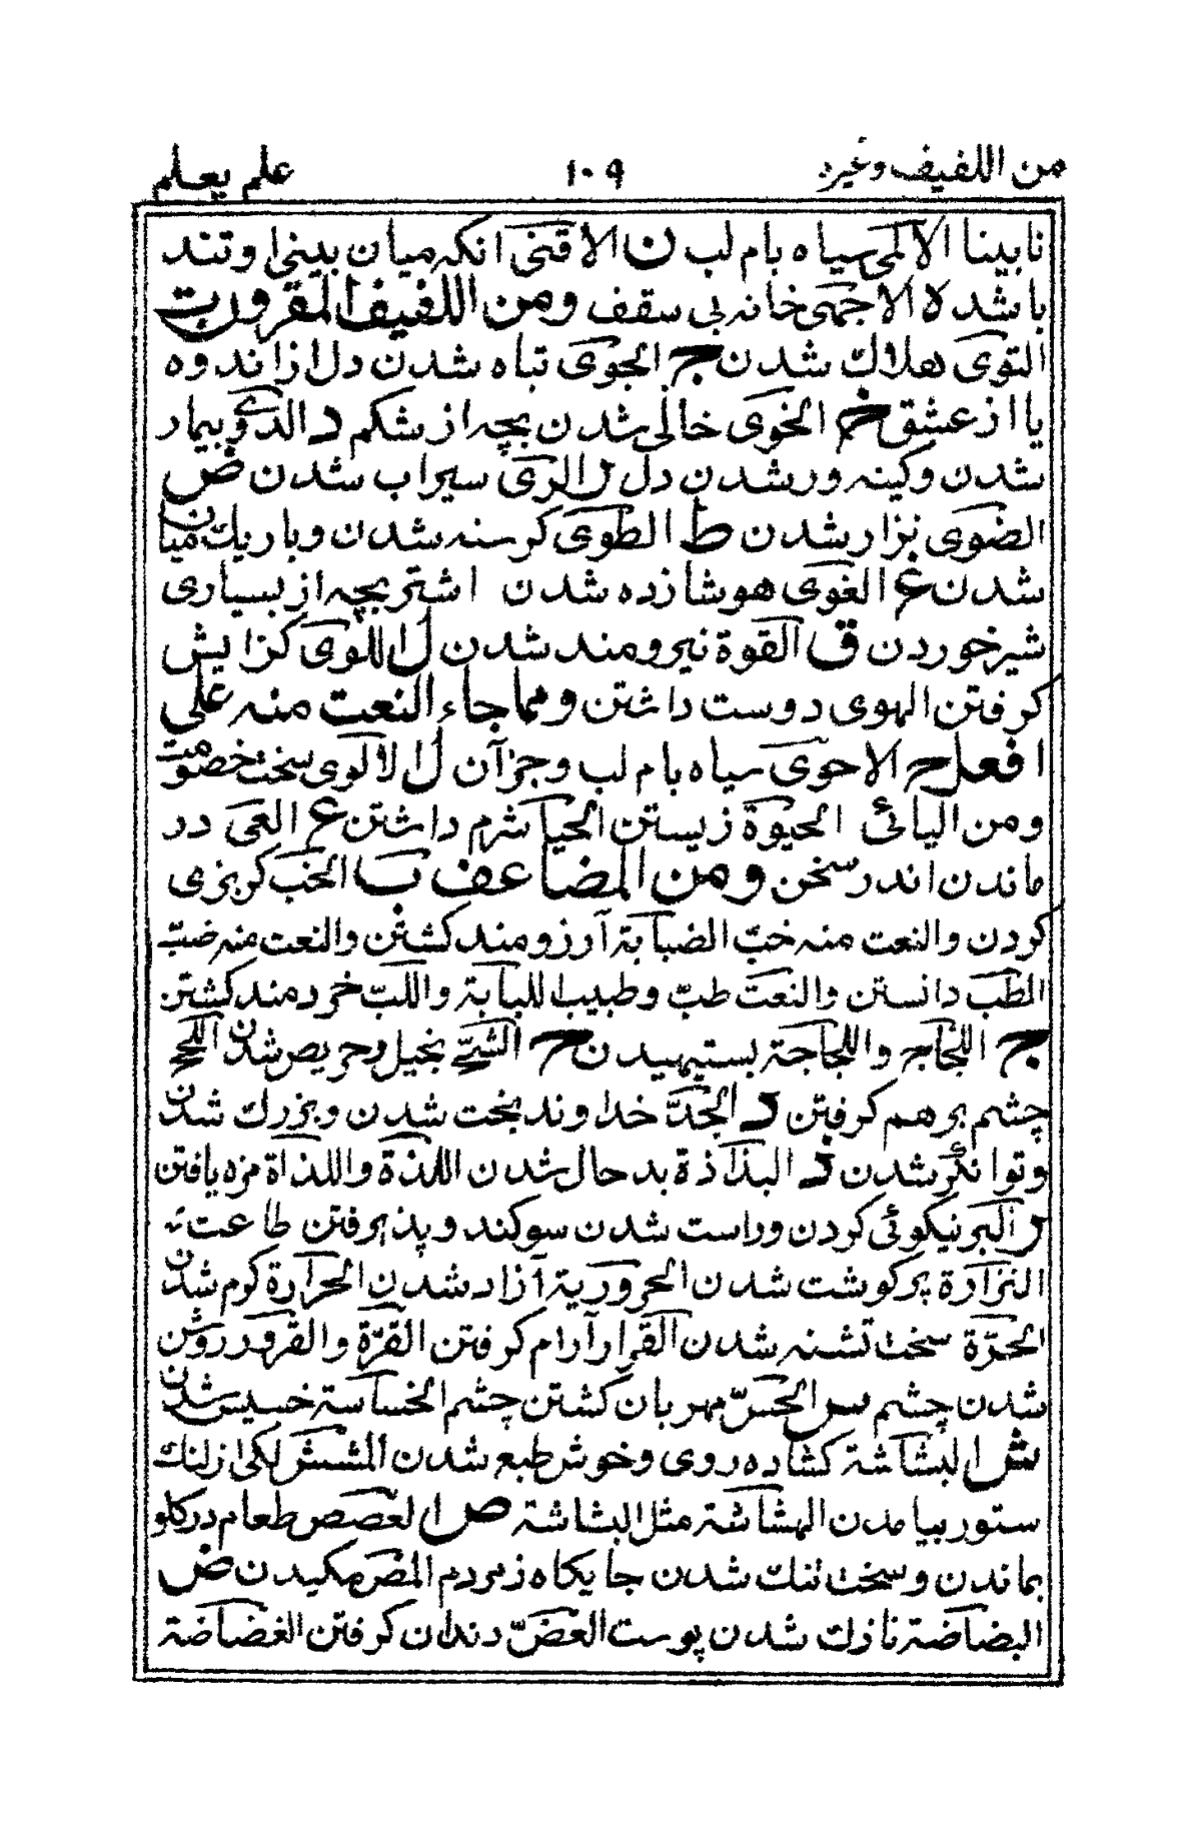 من اللفیف وغیره ۱۰۹ علم یعلم
نابینا الالمی سیاه بام لب ن الاقنی انکه میان بینی او تند
باشد ه الاجهی خانه بی سقف ومن اللفیف المقرون ت
التوی هلاك شدن ج الجوی تباه شدن دل از اندوه
یا از عشق خ الخوی خالی شدن بچه از شکم د الدوی بیمار
شدن وکینه ور شدن دل ر الری سیراب شدن ض
الضوی نزار شدن ط الطوی کرسنه شدن وباریك میان
شدن غ الغوی هوشازده شدن اشتر بچه از بسیاری
شیر خوردن ق القوة نیرومند شدن ل اللوی کزایش
کرفتن الهوی دوست داشتن ومما جاء النعت منه علی
افعل ح الاحوی سیاه بام لب وجز آن ل الالوی سخت خصومت
ومن الیائی الحیوة زیستن الحیا شرم داشتن ع العی در
ماندن اندر سخن ومن المضاعف ب الخب کربزی
کردن والنعت منه خبّ الضبابة آرزومند کشتن والنعت منه ضبّ
الطب دانستن والنعت طبّ وطبیب اللبابة واللبّ خردمند کشتن
ج اللجاج واللجاجة بستیهیدن ح الشحّ بخیل وحریص شدن اللحح
چشم بر هم کرفتن د الجدّ خداوند بخت شدن وبزرك شدن
وتوانکر شدن ذ البذاذة بد حال شدن اللذة واللذاة مزه یافتن
ر البر نیکوئی کردن وراست شدن سوکند وپذیرفتن طاعت
الترارة پرکوشت شدن الحروریة آزاد شدن الحرارة کرم شدن
الحرّة سخت تشنه شدن القرار آرام کرفتن القرّة والقرور روشن
شدن چشم س الحسّ مهربان کشتن چشم الخساسة خسیس شدن
ش البشاشة کشاده روی وخوش طبع شدن المشش لکی از لنك
ستور بیامدن الهشاشة مثل البشاشة ص العصص طعام در کلو
بماندن وسخت تنك شدن جایکاه ز مردم المصّ مکیدن ض
البضاضة نازك شدن پوست العضّ دندان کرفتن الغضاضة